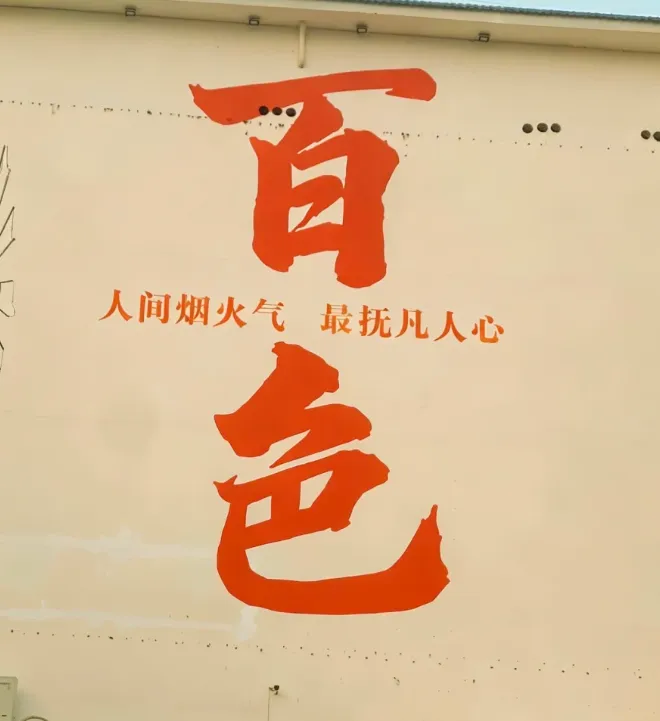 百
人间烟火气 最抚凡人心
色